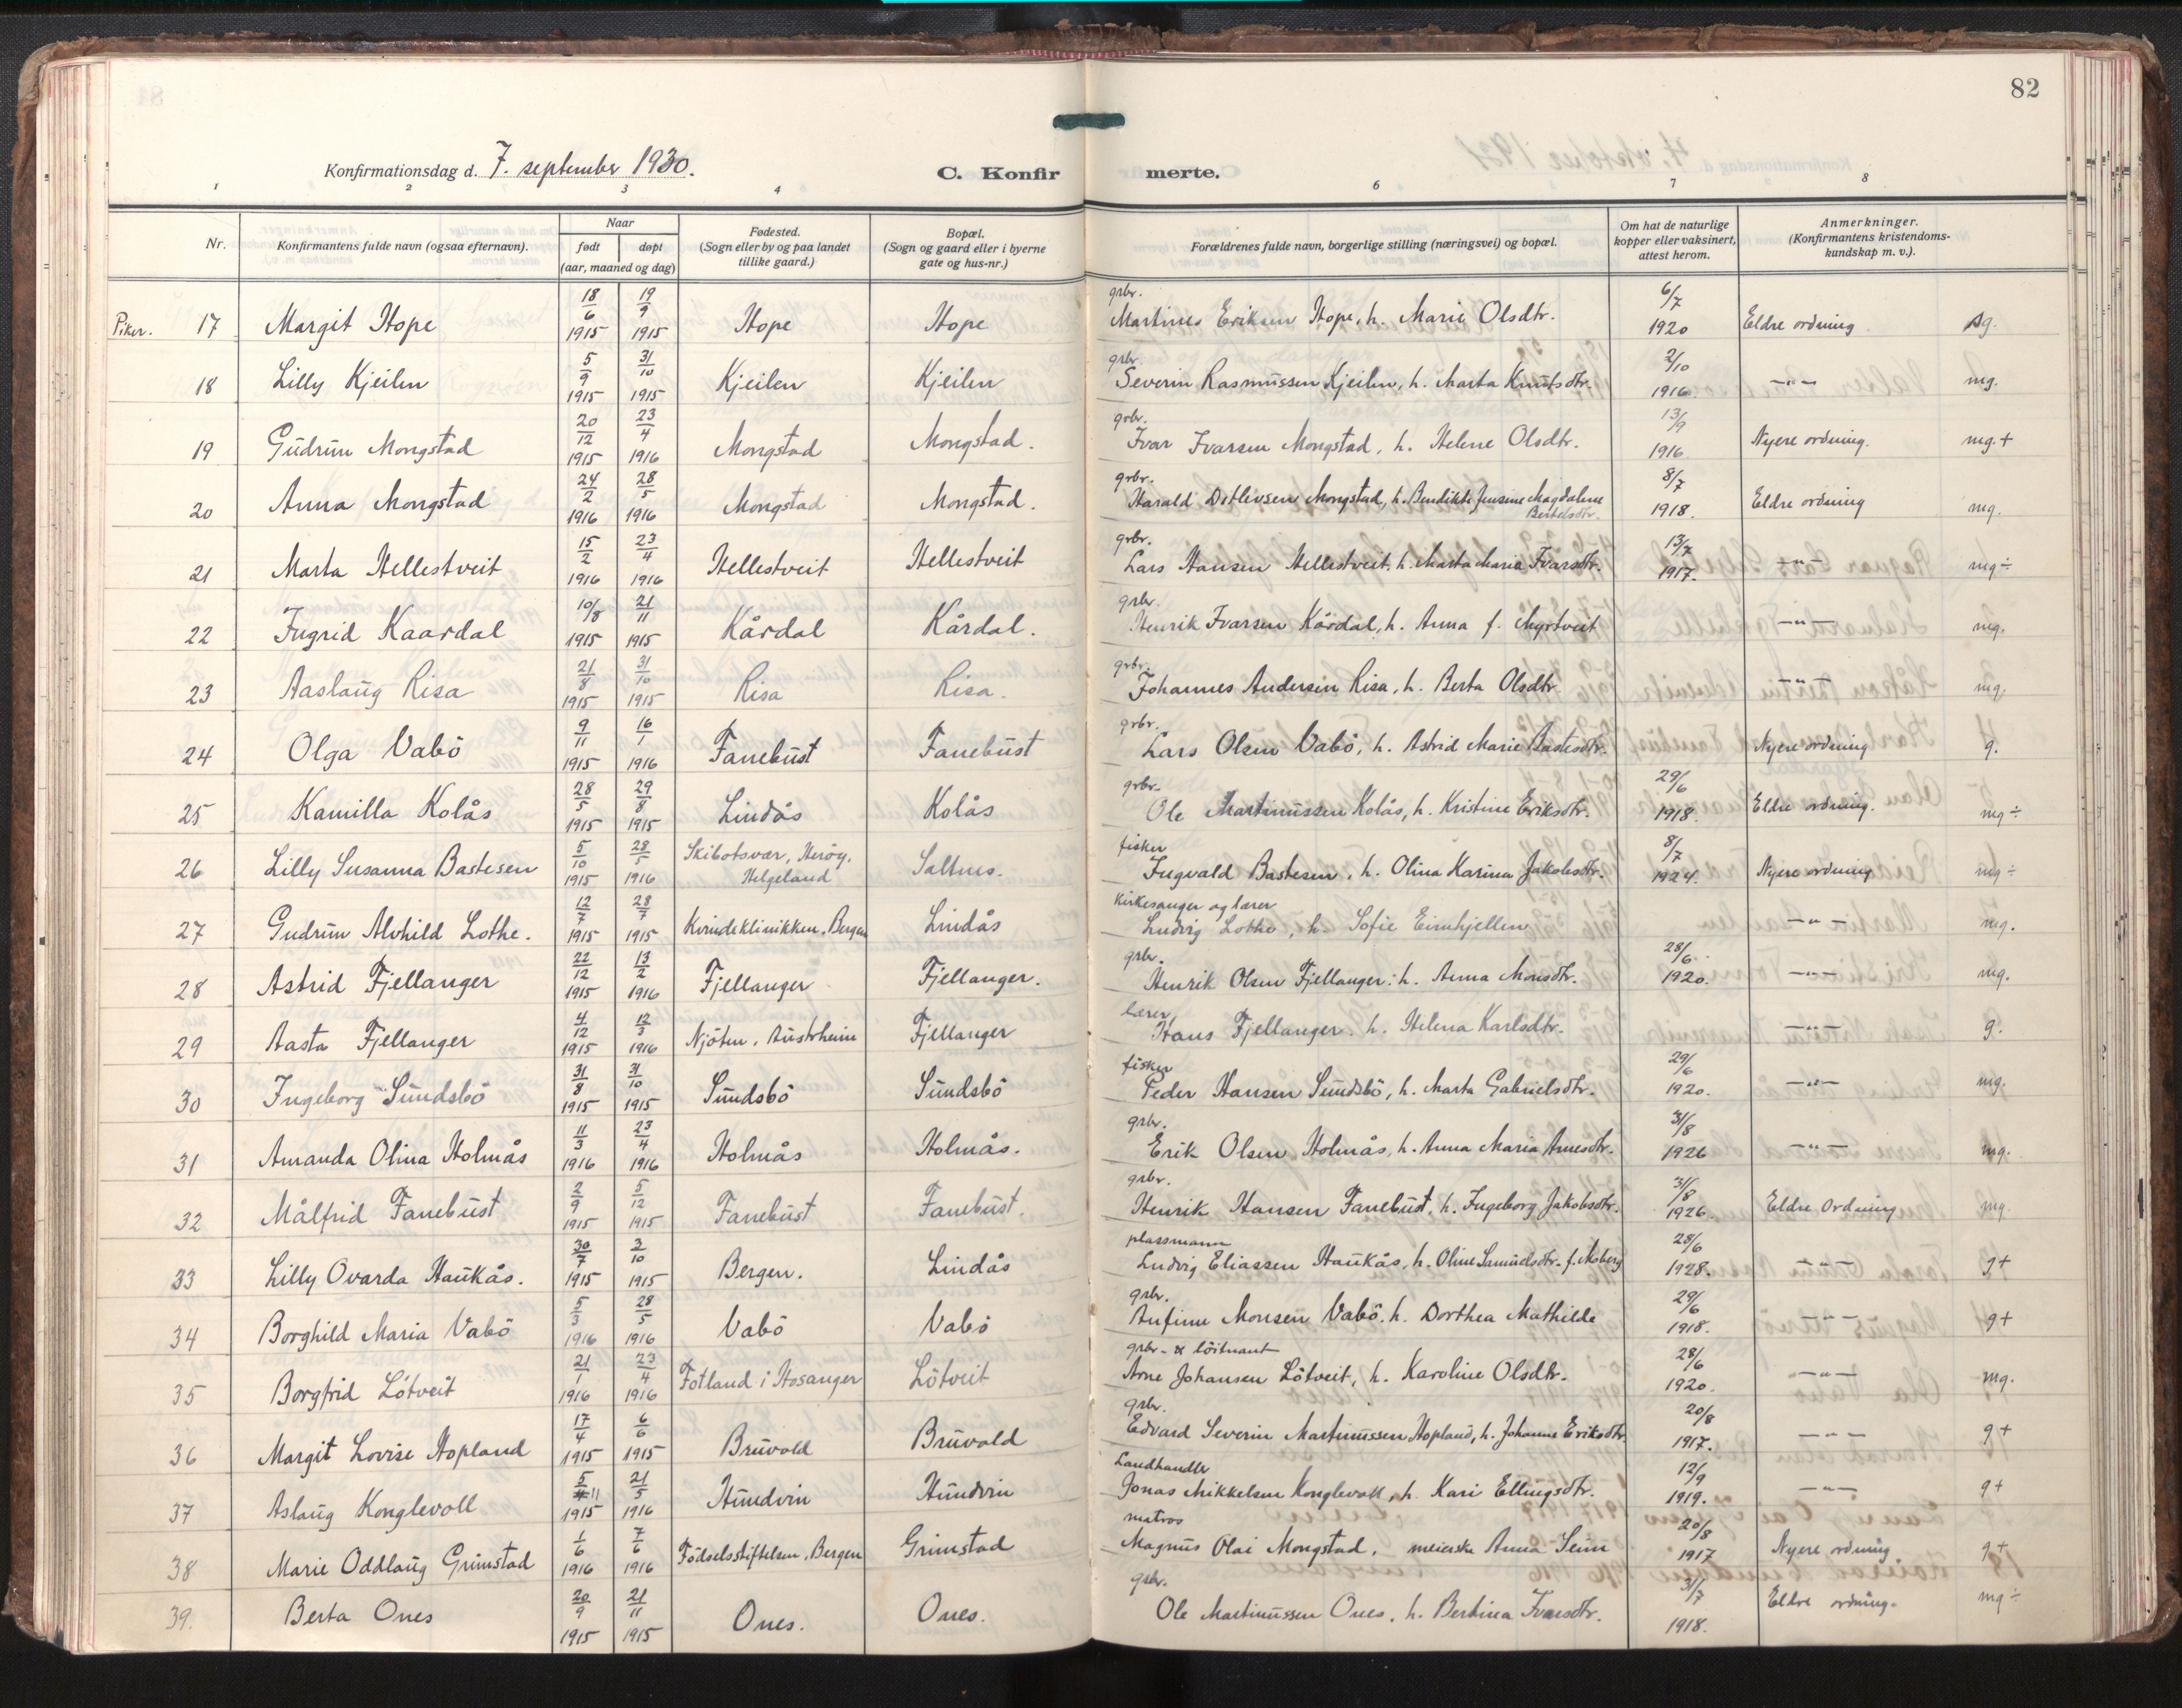 82
Konfirmationsdag d. 7. september 1930. C. Konfirmerte.
1 2 3 4 6 7 8
Nr. Konfirmantens fulde navn (ogsaa efternavn). Naar født døpt (aar, maaned og dag) Fødested. (Sogn eller by og paa landet tillike gaard.) Bopæl. (Sogn og gaard eller i byerne gate og hus-nr.) Forældrenes fulde navn, borgerlige stilling (næringsvei) og bopæl. Om hat de naturlige kopper eller vaksinert, attest herom. Anmerkninger. (Konfirmantens kristendomskundskap m. v.).
Piker. 17 Margit Hope 18/6 1915 19/9 1915 Hope Hope grbr. Martines Eriksen Hope, h. Marie Olsdtr. 6/7 1920 Eldre ordning sg.
18 Lilly Kjeilen 5/9 1915 31/10 1915 Kjeilen Kjeilen grbr. Severin Rasmussen Kjeilen, h. Marta Knutsdtr. 2/10 1916 —"— mg.
19 Gudrun Mongstad 20/12 1915 23/4 1916 Mongstad Mongstad. grbr. Ivar Ivarsen Mongstad, h. Helene Olsdtr. 13/9 1916 Nyere ordning. mg.+
20 Anna Mongstad 24/2 1916 28/5 1916 Mongstad Mongstad. grbr. Harald Ditlivsen Mongstad, h. Bendikte Jensine Magdalene Bertelsdtr. 8/7 1918. Eldre ordning mg.
21 Marta Hellestveit 15/2 1916 23/4 1916 Hellestveit Hellestveit grbr. Lars Hansen Hellestveit, h. Marta Maria Ivarsdtr. 13/7 1917. —"— mg÷
22 Ingrid Kaardal 10/8 1915 21/11 1915 Kårdal Kårdal. grbr. Henrik Ivarsen Kårdal, h. Anna f. Myrtveit —"— mg.
23 Aaslaug Risa 21/8 1915 31/10 1915 Risa Risa. grbr. Johannes Andersen Risa, h. Berta Olsdtr. —"— mg.
24 Olga Vabö 9/11 1915 16/1 1916 Fanebust Fanebust grbr. Lars Olsen Vabö, h. Astrid Marie Bastesdtr. Nyere ordning g.
25 Kamilla Kolås 28/5 1915 29/8 1915 Lindås Kolås grbr. Ole Martinussen Kolås, h. Kristine Eriksdtr. 29/6 1918. Eldre ordning. mg÷
26 Lilly Susanna Bastesen 5/10 1915 28/5 1916 Skibotsvær, Heröy, Helgeland Saltnes. fisker Ingvald Bastesen, h. Olina Karina Jakobsdtr. 8/7 1924. Nyere ordning mg÷
27 Gudrun Alvhild Lothe. 12/7 1915 28/7 1915 Kvindeklinikken, Bergen Lindås Kirkesanger og lærer Ludvig Lothe, h. Sofie Eimhjellen —"— mg.
28 Astrid Fjellanger 22/12 1915 13/2 1916 Fjellanger Fjellanger. grbr. Henrik Olsen Fjellanger. h. Anna Monsdtr. 28/6 1920. —"— mg.
29 Aasta Fjellanger 4/12 1915 12/3 1916 Njöten, Austrheim Fjellanger lærer Hans Fjellanger. h. Helena Karlsdtr. —"— g.
30 Ingeborg Sundsbö 31/8 1915 31/10 1915 Sundsbö Sundsbö fisker Peder Hansen Sundsbö, h. Marta Gabrielsdtr. 29/6 1920. —"— mg.
31 Amanda Olina Holmås 11/3 1916 23/4 1916 Holmås Holmås. grbr. Erik Olsen Holmås, h. Anna Maria Arnesdtr. 31/8 1926 —"— mg.
32 Målfrid Fanebust 2/9 1915 5/12 1915 Fanebust Fanebust. grbr. Henrik Hansen Fanebust, h. Ingeborg Jakobsdtr. 31/8 1926. Eldre Ordning mg.
33 Lilly Ovarda Haukås. 30/7 1915 3/10 1915 Bergen. Lindås plassmann Ludvig Eliassen Haukås, h. Oline Samuelsdtr. f. Moberg 28/6 1928. —"— g+
34 Borghild Maria Vabö 5/3 1916 28/5 1916 Vabö Vabö grbr. Anfinn Monsen Vabö. h. Dorthea Mathilde 29/6 1918. —"— g+
35 Borgfrid Lötveit 21/1 1916 23/4 1916 Fotland i Hosanger Lötveit grbr. & löitnant Arne Johansen Lötveit, h. Karoline Olsdtr. 28/6 1920. —"— mg.
36 Margit Lovise Hopland 17/4 1915 6/6 1915 Bruvold Bruvold grbr. Edvard Severin Martinussen Hopland, h. Johanne Eriksdtr. 20/8 1917. —"— g+
37 Aslaug Konglevoll 5/11 1915 21/5 1916 Hundvin Hundvin Landhandler Jonas Mikkelsen Konglevoll, h. Kari Ellingsdtr. 12/9 1919. —"— g+
38 Marie Oddlaug Grimstad 1/6 1916 7/6 1916 Födselsstiftelsen, Bergen Grimstad matros Magnus Olai Mongstad, meierske Anna Seim 20/8 1917 Nyere ordning g+
39. Berta Ones 20/9 1915 21/11 1915 Ones. Ones. grbr. Ole Martinussen Ones, h. Bertina Ivarsdtr. 31/7 1918. Eldre ordning. mg÷